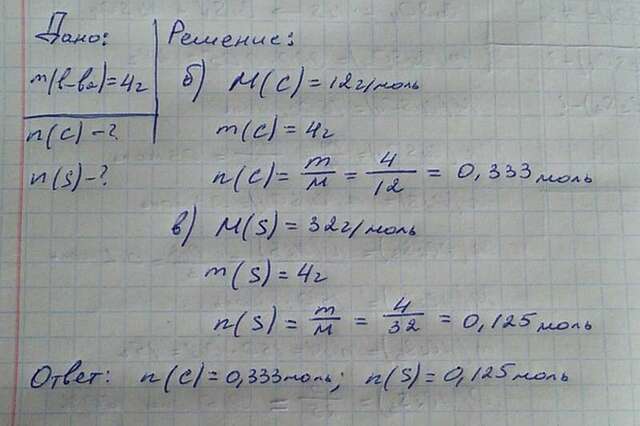 Дано:
m(в-ва)=4г
n(C)-?
n(S)-?
Решение:
б) M(C)=12г/моль
m(C)=4г
n(C)= m/M = 4/12 = 0,333 моль
в) M(S)=32г/моль
m(S)=4г
n(S)= m/M = 4/32 = 0,125 моль
Ответ: n(C)=0,333моль; n(S)=0,125 моль